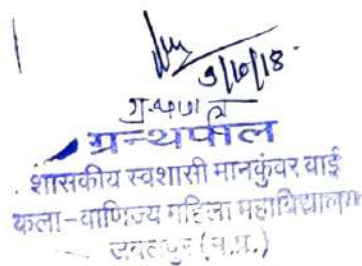 3/10/18
ग्रन्थपाल
शासकीय स्वशासी मानकुंवर बाई
कला-वाणिज्य महिला महाविद्यालय
जबलपुर (म.प्र.)